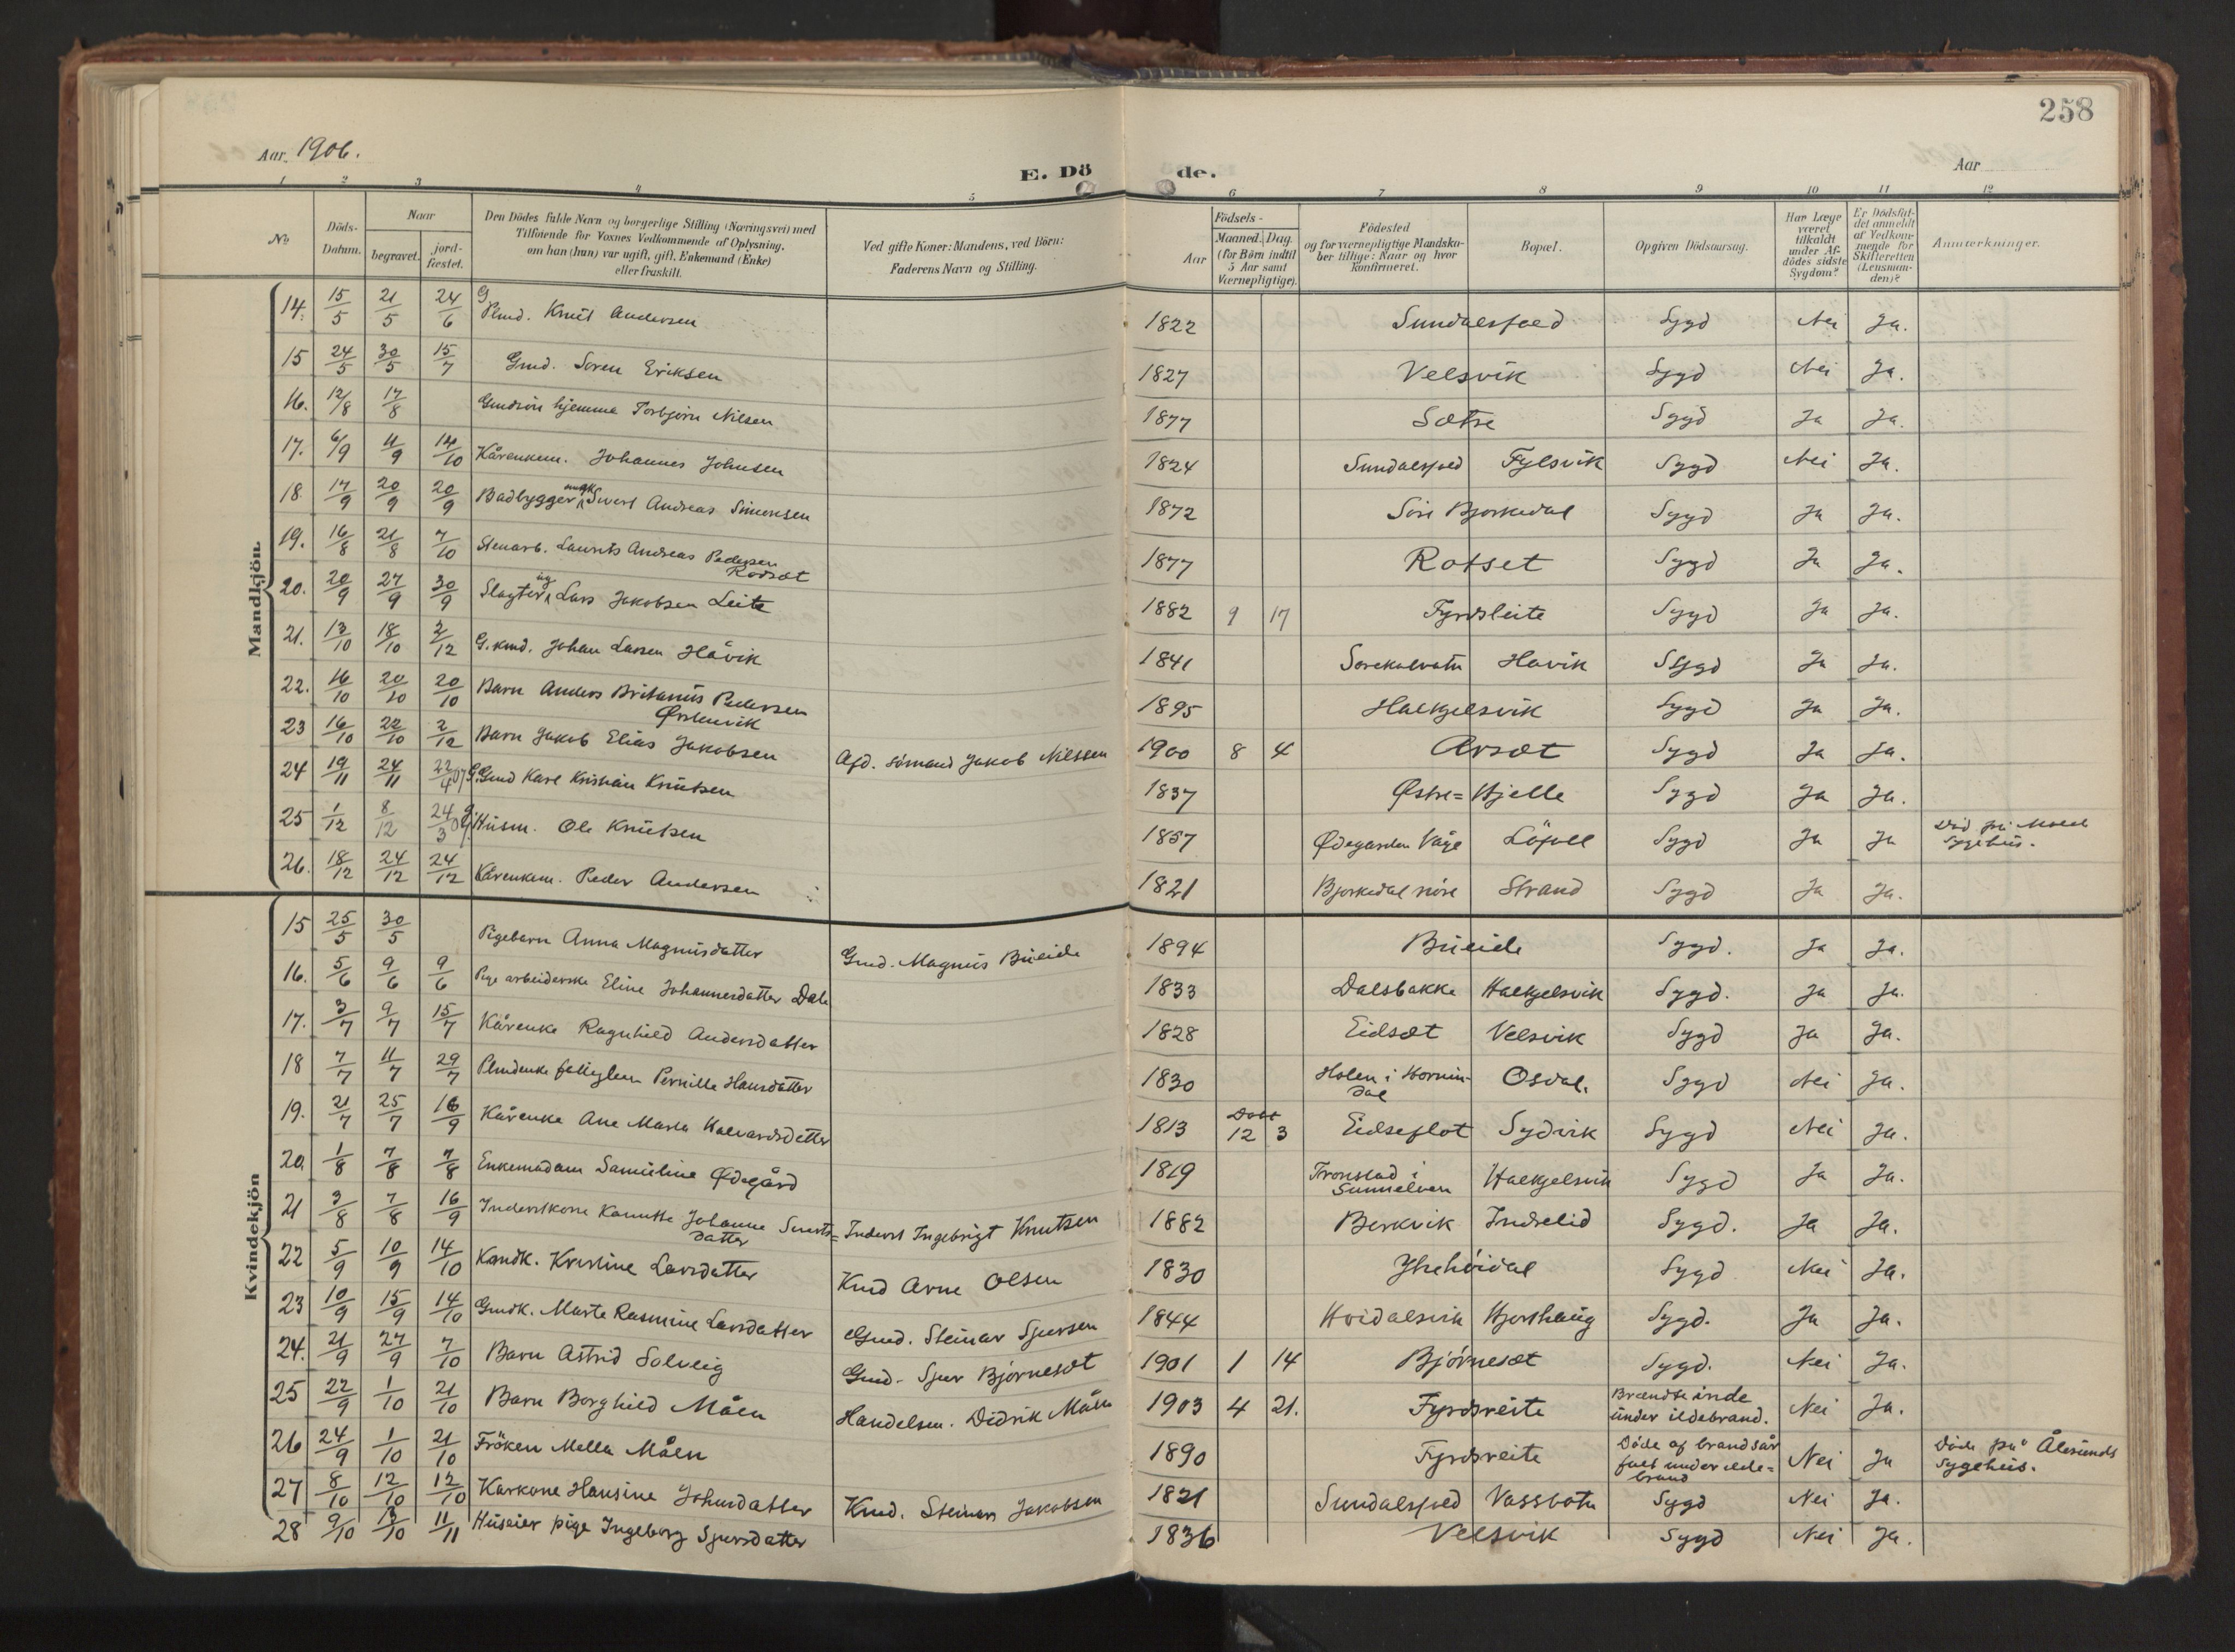 258
Aar 1906.
E. Dö de.
Aar
1 2 3 4 5 6 7 8 9 10 11 12
No
Döds-Datum.
Naar
begravet.
jord-fæstet.
Den Dödes fulde Navn og borgerlige Stilling (Næringsvei) med
Tilföiende for Voxnes Vedkommende af Oplysning,
om han (hun) var ugift, gift, Enkemand (Enke)
eller fraskilt.
Ved gifte Koner: Mandens, ved Börn:
Faderens Navn og Stilling.
Födsels-
Aar
Maaned. Dag.
(for Börn indtil
5 Aar samt
Værnepligtige).
Födested
og for værnepligtige Mandska-
ber tillige: Naar og hvor
konfirmeret.
Bopæl.
Opgiven Dödsaarsag.
Har Læge
været
tilkaldt
under Af-
dödes sidste
Sygdom?
Er Dödsfal-
det anmeldt
af Vedkom-
mende for
Skifteretten
(Lensman-
den)?
Anmærkninger.
Mandkjön.
14. 15/5 21/5 24/6 Knut Andersen 1822 Sygd Nei Ja.
15 24/5 30/5 15/7 Gmd. Soren Eriksen 1827 Velsvik Sygd Nei Ja.
16. 12/8 17/8 hjemme Torbjörn Nilsen 1877 Sætre Sygd Ja Ja.
17. 6/9 11/9 14/10 Kårenkem. Johannes Johnsen 1824 Fylsvik Sygd Nei Ja.
18. 17/9 20/9 20/9 Badbygger Sivert Andreas Simonsen 1872 Söre Bjorkedal Sygd Ja Ja.
19. 16/8 21/8 7/10 Stenarb. Laurits Andreas Pedersen Rodsæt 1877 Rotset Sygd Ja Ja.
20. 20/9 27/9 30/9 Slagter ug Lars Jakobsen Leite 1882 9 17 Fyrdsleite Sygd Ja Ja.
21. 13/10 18/10 2/12 G.kmd. Johan Larsen Håvik 1841 Havik Sygd Ja Ja.
22. 16/10 20/10 20/10 Barn Anders Britanus Pedersen 1895 Hælkjelsvik Sygd Ja Ja.
23 16/10 22/10 2/12 Barn Jakob Elias Jakobsen Afd. sömand Jakob Nilssen 1900 8 4 Årsæt Sygd Ja Ja.
24 19/11 24/11 22/4 07 G. Gmd Karl Kristian Knutsen 1837 Østre=Hjelle Sygd Ja Ja.
25 1/12 8/12 24/3 Husm. Ole Knutsen 1857 Ødegarden Våge Löfoll Sygd Ja Ja Död på Sygehus.
26. 18/12 24/12 24/12 Kårenkem. Peder Andersen 1821 Bjorkedal Strand Sygd Ja Ja.
Kvindekjön
15 25/5 30/5 Pigebarn Anna Magnusdatter Gmd. Magnus Bueide 1894 Bueide Sygd. Ja Ja.
16. 5/6 9/6 9/6 Pige arbeiderske Eline Johannesdatter Dale 1833 Dalsbakke Hælkjelsvik Sygd. Ja Ja.
17. 3/7 9/7 15/7 Kårenke Ragnhild Andersdatter 1828 Eidsæt Velsvik Sygd Ja Ja.
18 7/7 11/7 29/7 Pernille Hansdatter 1830 Holen i Hornin-dal Osdal. Sygd Nei Ja.
19. 21/7 25/7 16/9 Kårenke Ane Marta Halvardsdatter 1813 Døbt 12 3 Eidseflot Sydvik Sygd Nei Ja.
20. 1/8 7/8 7/8 Enkemadam Samuline Ødegård 1819 Tronstad i Sunnelven Hælkjelsvik Sygd Ja Ja.
21 3/8 7/8 16/9 Inderstkone Kanutte Johanne Inderst Ingebrigt Knutsen 1882 Berkvik Indrelid Sygd. Ja Ja.
22 5/9 10/9 14/10 Kmdk. Kristine Larsdatter Kmd Arne Olsen 1830 Sygd Nei Ja.
23 10/9 15/9 14/10 Gmdk. Marte Rasmine Larsdatter Gmd. Steinar Sjursen 1844 Hoidalsvik Hjorthaug Sygd. Ja Ja.
24. 21/9 27/9 7/10 Barn Astrid Solveig Gmd. Sjur Bjørnesæt 1901 1 14 Bjørnesæt Sygd. Nei Ja.
25 22/9 1/10 21/10 Barn Borghild Måen Handelsm. Didrik Måen 1903 4 21. Fyrdsreite Brændte inde under ildebrand. Nei Ja.
26 24/9 1/10 21/10 Fröken Mella Måen 1890 Fyrdsreite Døde af brandsår under ilde=brand Nei Ja Døde på Ålesunds Sygehus.
27 8/10 12/10 12/10 Karkone Hansine Johnsdatter Kmd. Steinar Jakobsen 1821 Vassbotn Sygd Nei Ja.
28 9/10 13/10 11/11 pige Ingeborg Sjursdatter 1836 Velsvik Sygd Nei Ja.